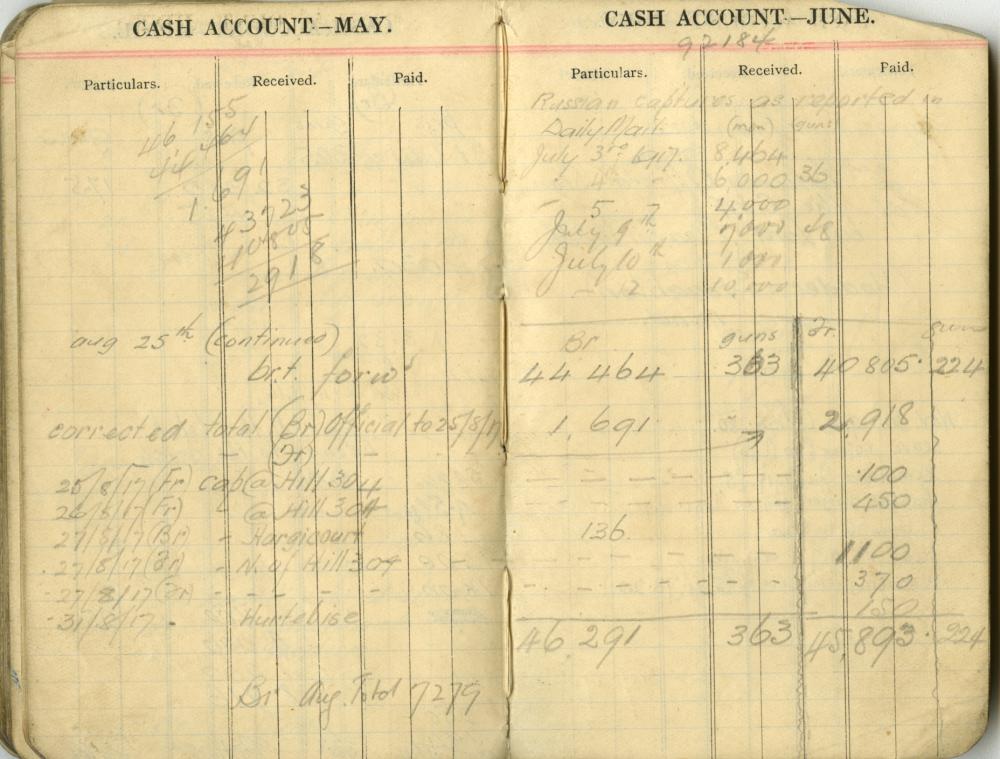 CASH ACCOUNT—MAY.
Particulars. Received. Paid.
46 155
44 464
1.691
43723
40805
2918
Aug 25th (continued)
brt. forwd
corrected total (Br) Official to 25/8/17
" (Fr) "
25/8/17 (Fr) cap @ Hill 304
26/8/17 (Fr) " @ Hill 304
27/8/17 (Br) - Hargicourt
27/8/17 (Fr) - N. of Hill 304
27/8/17 (Fr) - - - -
31/8/17 - Hurtebise
Br Aug. Total 7279
CASH ACCOUNT—JUNE.
92184
Particulars. Received. Paid.
Russian captures as reported in
Daily Mail. (men) guns
July 3rd 1917. 8,464
" 4th " 6,000 36
" 5 4,000
July 9th 7,000 48
July 10th 1,000
- 12 10,000
Br guns Fr. guns
44 464 363 40 805 224
1,691 2,918
100
450
136
1100
370
150
46 291 363 45,893 224